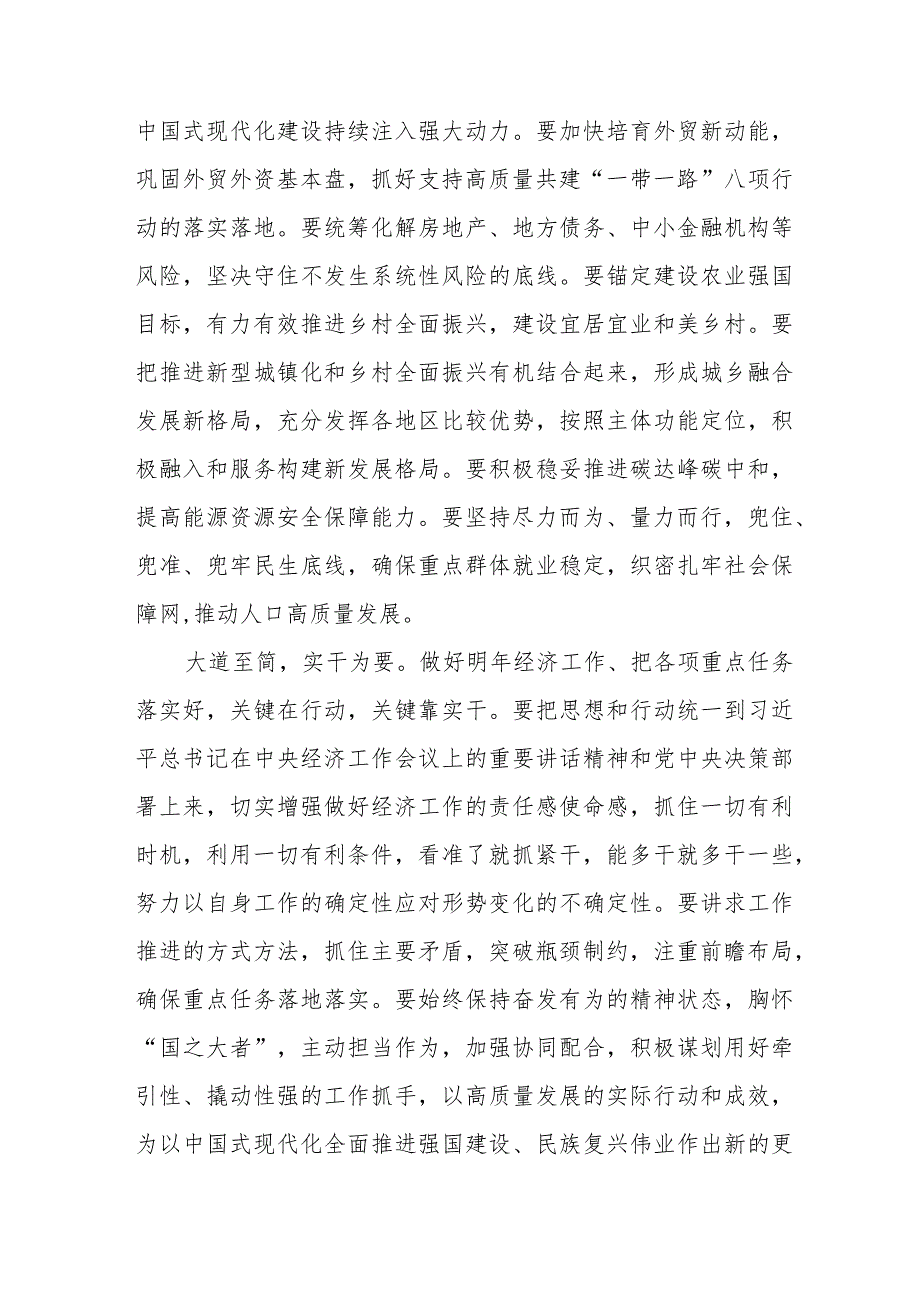 中国式现代化建设持续注入强大动力。要加快培育外贸新动能，
巩固外贸外资基本盘，抓好支持高质量共建“一带一路”八项行
动的落实落地。要统筹化解房地产、地方债务、中小金融机构等
风险，坚决守住不发生系统性风险的底线。要锚定建设农业强国
目标，有力有效推进乡村全面振兴，建设宜居宜业和美乡村。要
把推进新型城镇化和乡村全面振兴有机结合起来，形成城乡融合
发展新格局，充分发挥各地区比较优势，按照主体功能定位，积
极融入和服务构建新发展格局。要积极稳妥推进碳达峰碳中和，
提高能源资源安全保障能力。要坚持尽力而为、量力而行，兜住、
兜准、兜牢民生底线，确保重点群体就业稳定，织密扎牢社会保
障网,推动人口高质量发展。
大道至简，实干为要。做好明年经济工作、把各项重点任务
落实好，关键在行动，关键靠实干。要把思想和行动统一到习近
平总书记在中央经济工作会议上的重要讲话精神和党中央决策部
署上来，切实增强做好经济工作的责任感使命感，抓住一切有利
时机，利用一切有利条件，看准了就抓紧干，能多干就多干一些，
努力以自身工作的确定性应对形势变化的不确定性。要讲求工作
推进的方式方法，抓住主要矛盾，突破瓶颈制约，注重前瞻布局，
确保重点任务落地落实。要始终保持奋发有为的精神状态，胸怀
“国之大者”，主动担当作为，加强协同配合，积极谋划用好牵
引性、撬动性强的工作抓手，以高质量发展的实际行动和成效，
为以中国式现代化全面推进强国建设、民族复兴伟业作出新的更